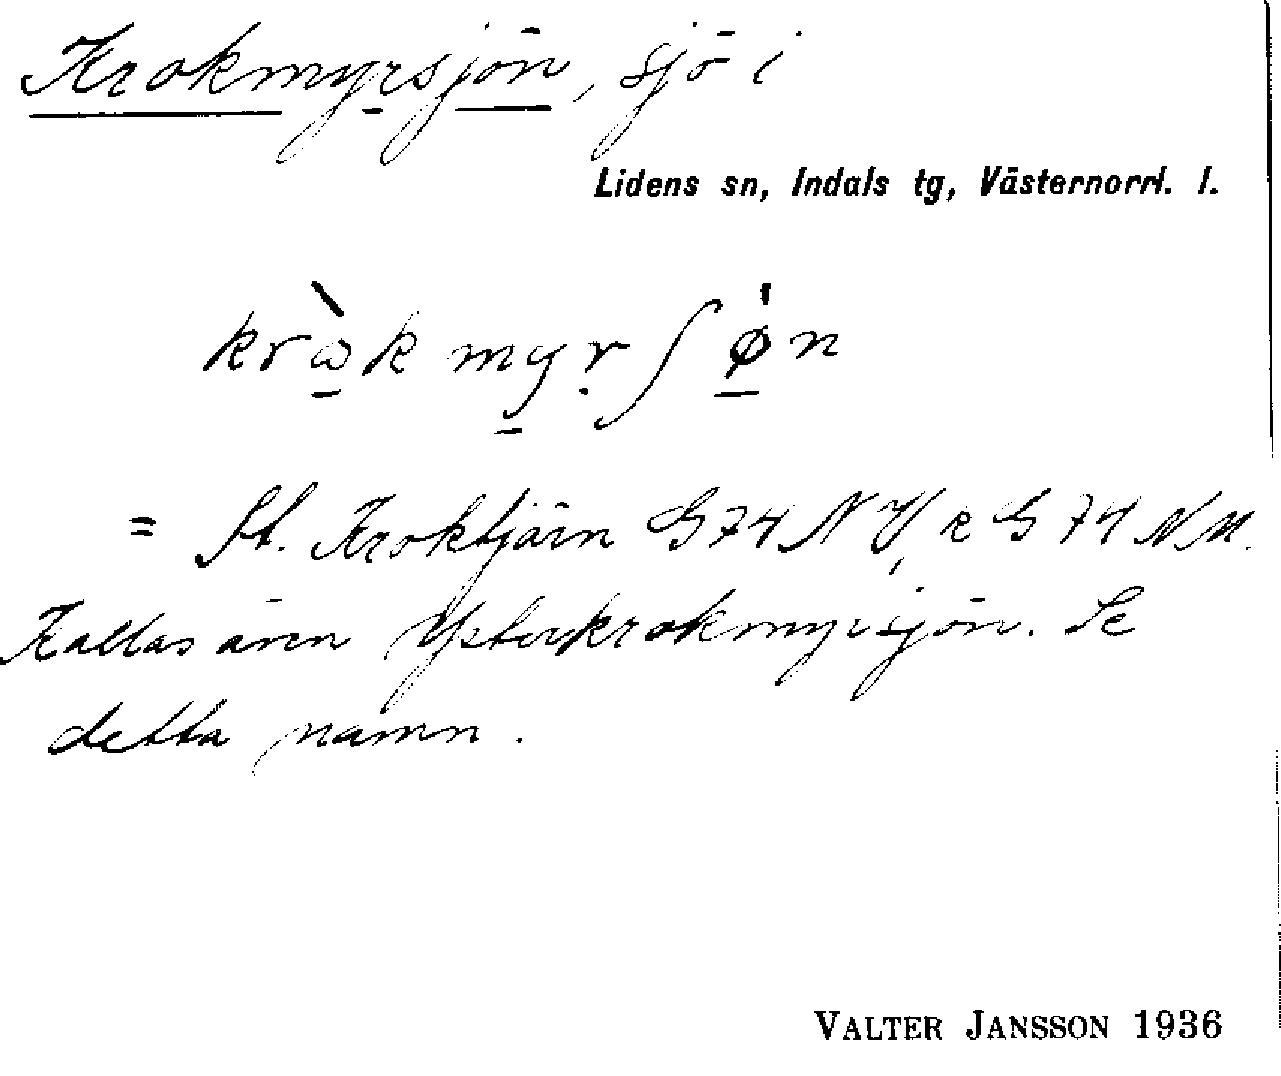 Krokmyrsjön, sjö i
Lidens sn, Indals tg, Västernorrl. l.
krὼk myṛʃø̍n
= St. Kroktjärn G74 NV, k G74 NM.
Kallas även Ysterkrokmyrsjön. Se
detta namn.
VALTER JANSSON 1936